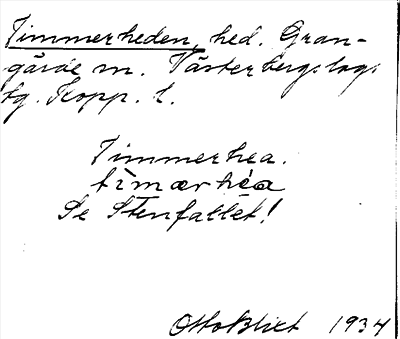 Timmerheden, hed. Gran-
gärde sn. Västerbergslags
tg. Kopp. l.
Timmerhea.
tìmær héa
Se Stenfallet!
Otto Blixt 1934